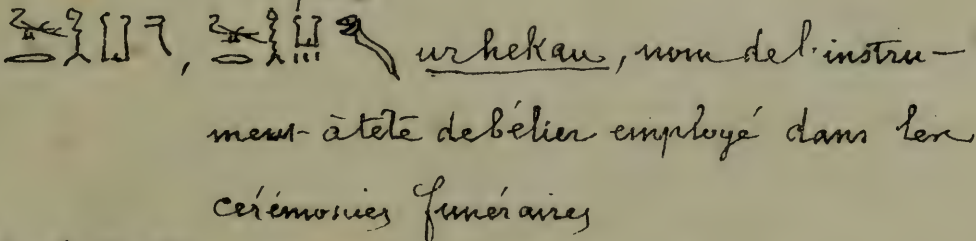 urhekau, nom de l'instru-
ment à tête de bélier employé dans les
cérémonies funéraires